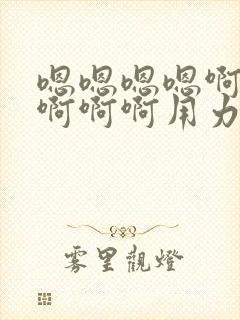 嗯嗯嗯嗯啊
啊啊啊用力
雾里觀燈